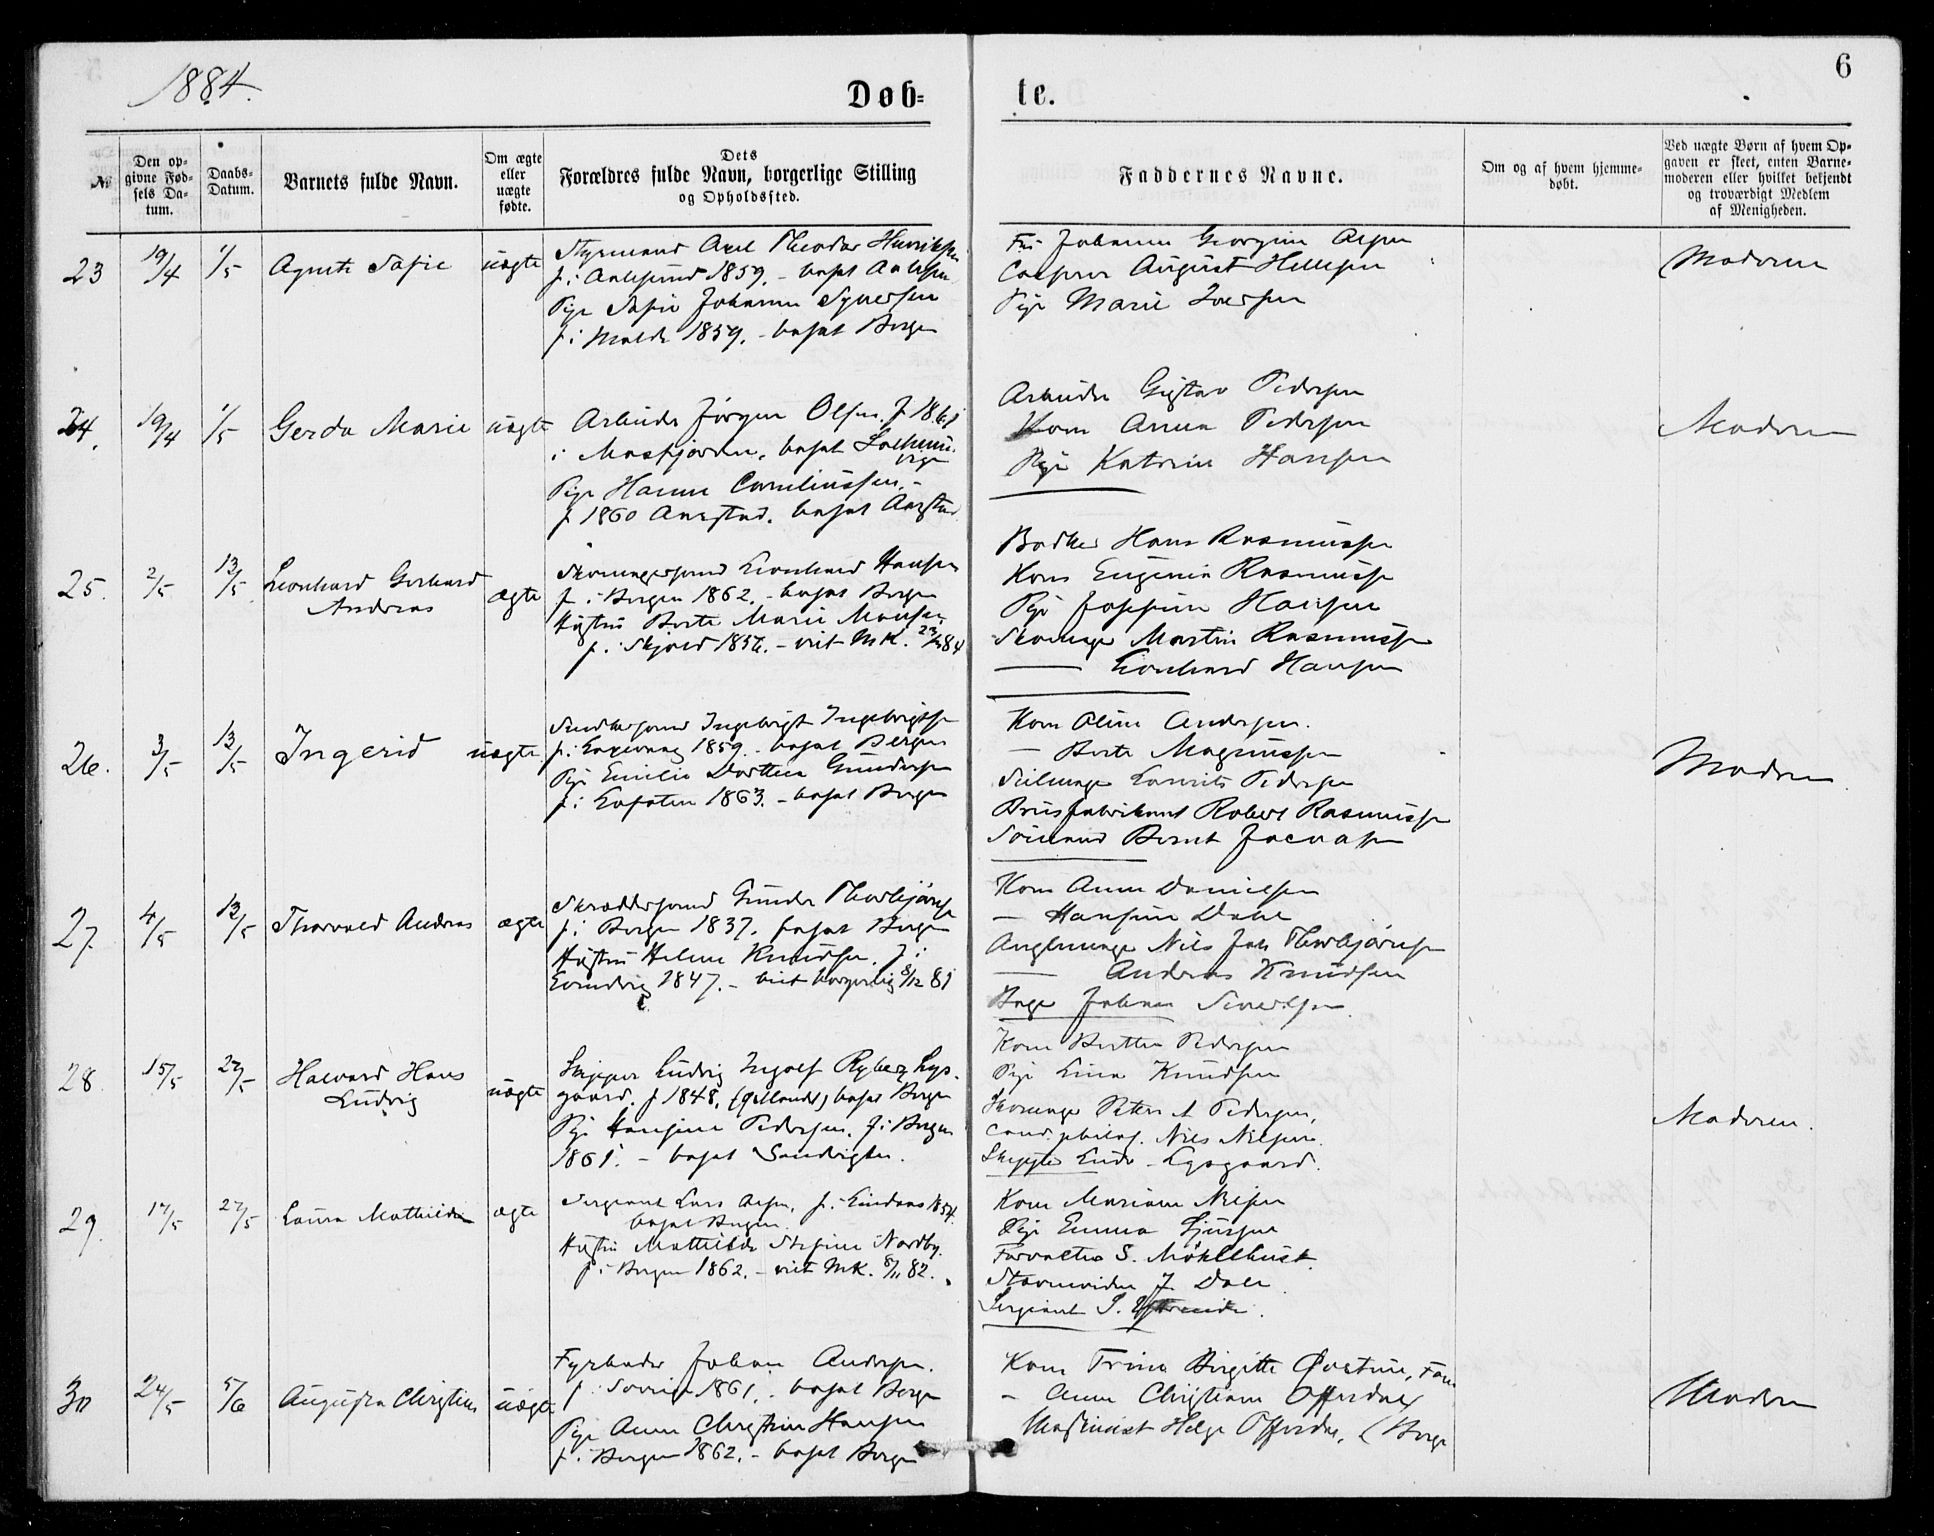 1884.
6
Døb=
te.
№
Den op-
givne Fød-
sels Da-
tum.
Daabs-
Datum.
Barnets fulde Navn.
Om ægte
eller
uægte
fødte.
Dets
Forældres fulde Navn, borgerlige Stilling
og Opholdssted.
Faddernes Navne.
Om og af hvem hjemme-
døbt.
Ved uægte Børn af hvem Op-
gaven er skeet, enten Barne-
moderen eller hvilket bekjendt
og troværdigt Medlem
af Menigheden.
23 19/4 1/5 Agnete Sofie uægte
Styrmand Axel Theodor Henriksen
f. i Aalesund 1859. - bosat Aalesund
Pige Sofie Johanne Syversen
f. i Molde 1859. - bosat Bergen
Johanne Georgine
August Hellesen
Pige Marie Iversen
Moderen
24. 19/4 1/5 Gerda Marie uægte
Arbeider Jørgen Olsen. f 1861
i Masfjorden. bosat
Pige Hanne Corneliussen. -
f 1860 Aarstad. bosat Aarstad
Arbeider Gustav Pedersen
Kone Anna Pedersen
Pige Katrine Hansen
Moderen
25. 2/5 13/5 Leonhard Gerhard
Andreas
ægte
Skomagersvend Leonhard Hansen
f. i Bergen 1862. - bosat Bergen
Hustru Berte Marie Monsen
f. i Skjold 1856. - viet M.K. 84
Bødker Hans Rasmussen
Kone Eugenia Rasmussen
Pige Josefine Hansen
Skomager Martin Rasmussen
— Leonhard Hansen
26. 3/5 13/5 Ingerid uægte
Snedkersvend Ingebrigt Ingebrigtsen
f. i 1859. - bosat Bergen
Pige Emilie Dorthea Gundersen
f. i Lofoten 1863. - bosat Bergen
Kone Oline Andersen.
— Berte Magnussen
Seilmager Laurits Pedersen
Brusfabrikant Robert Rasmussen
Sømand Bernt Jacobsen
Moderen
27. 4/5 13/5 Thorvald Andreas ægte
Skræddersvend Gunder Thorbjørnsen
f. i Bergen 1837. bosat Bergen
Hustru Helene Knudsen. f. i
Evindvig 1847. - viet borgerlig 8/12 81
Kone Anne Danielsen
— Hansine Dahl
Nils Joh Thorbjørnsen
— Andreas Knudsen
Bager Johan Sivertsen.
28. 15/5 27/5 Halvard Hans
Ludvig
uægte
Skipper Ludvig Ingolf Ryberg Lys-
gaard. f 1848, (Jylland) bosat Bergen
Pige Hansine Pedersen. f. i Bergen
1861. - bosat Sandvigen.
Kone Berthe Pedersen
Pige Lina Knudsen
Skomager Peter A Pedersen,
cand. philos. Nils Nilsen.
Skipper Ludv. Lysgaard.
Moderen.
29. 17/5 27/5 Laura Mathilde ægte
Sergeant Lars Olsen, f. i Lindaas 1854.
bosat Bergen.
Hustru Mathilde Stefine Nordby.
f. i Bergen 1862. - viet M.K. 8/11 82.
Kone Mariane Nilsen
Pige Emma
Forvalter S. Møhlhust.
J. Dahl.
Sergeant S.
30 24/5 5/6 Augusta Christine uægte
Fyrbøder Johan Andersen.
f. 1861. bosat Bergen
Pige Anne Christine Hansen
f. i Bergen 1862. - bosat Bergen
Kone Trine Birgitte
— Anne Christiane Offerdal
Maskinist Helge Offerdal, (Bergen
Moderen